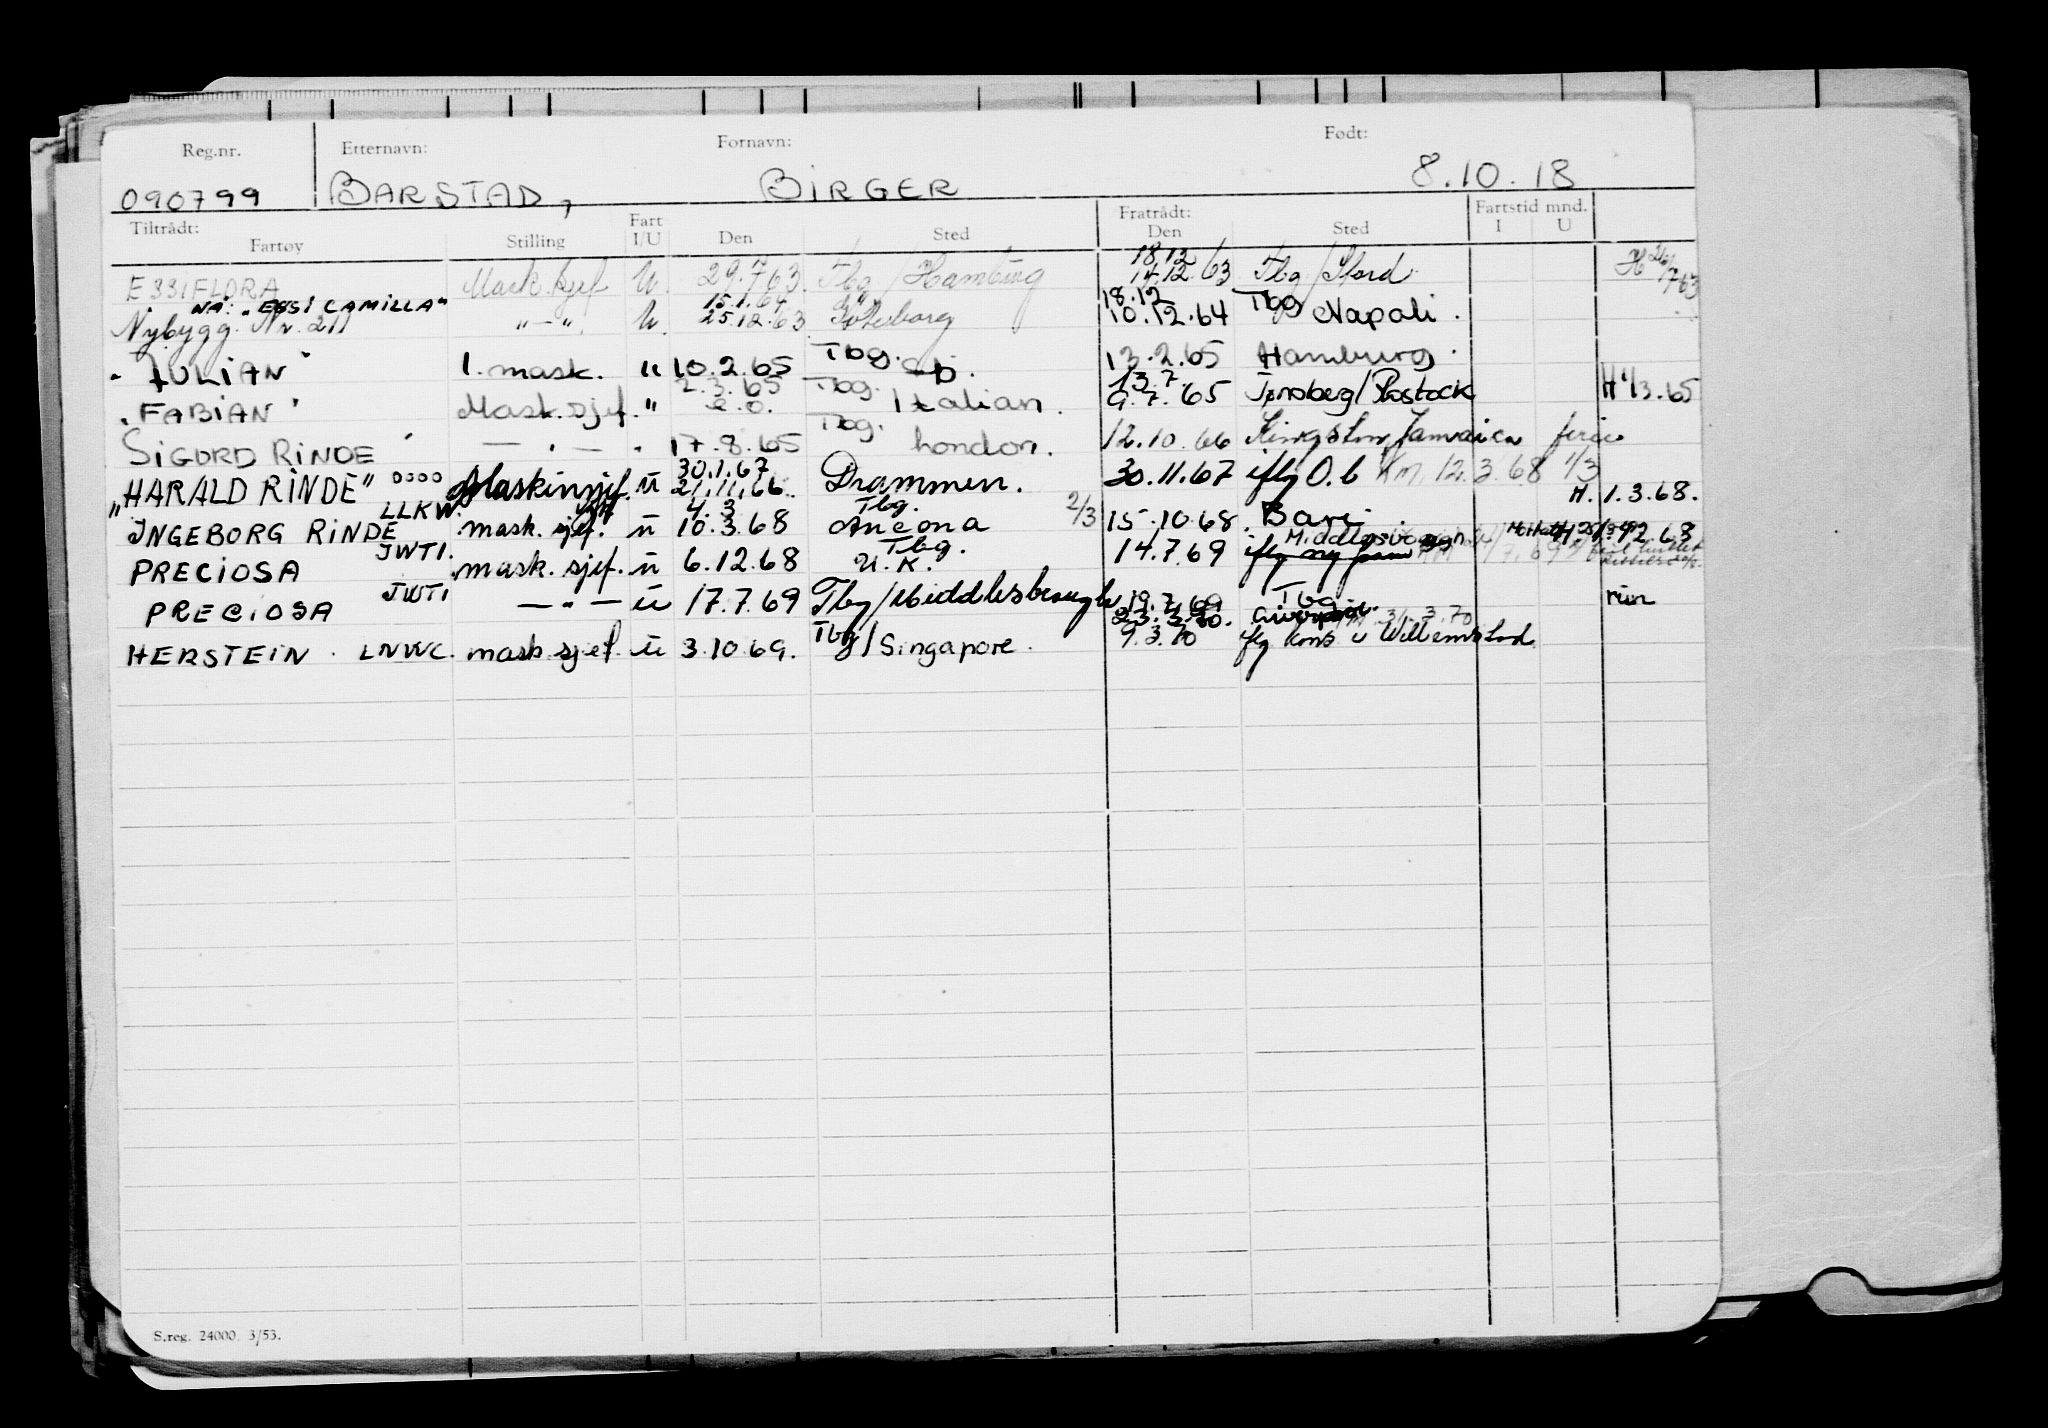 Reg.nr. Etternavn: Fornavn: Født:
090799 BARSTAD, BIRGER 8.10.18
Tiltrådt: Fart Fratrådt: Fartstid mnd.
Fartøy Stilling I/U Den Sted Den Sted I U
18.12
ESSIFLORA Mask.sjef U. 29.7.63. Tbg/Hamburg 14.12.63 Tbg/Stord H 26/7.63
NA: "ESSI CAMILLA" 15.1.64 18.12 Tbg
Nybygg. Nr. 211 " — " U. 25.12.63 Göteborg 10.12.64 Napoli.
"JULIAN" 1. mask. " 10.2.65 Tbg. 13.2.65 Hamburg.
2.3.65 Tbg. 13.7.
"FABIAN" Mask.sjef. " e.o. Italian. 9.7.65 Tønsberg/Rostock H 1/3.65
SIGURD RINDE — " — " 17.8.65 Tbg. London. 12.10.66 Kingston, Jamaica ferie
30.1.67
"HARALD RINDE" Maskinsjef. ü 21.11.66. Drammen. 30.11.67 iflg O.b Km. 12.3.68 1/3
LLKW 4.3 Tbg. 2/3 H. 1.3.68.
INGEBORG RINDE mask. sjef. ü 10.3.68 Ancona 15.10.68. Bari.
JWTI. Tbg. Middlesbrough
PRECIOSA mask. sjef. ü 6.12.68 U.K. 14.7.69
JWTI 19.7.69 Tbg
PRECIOSA — " — ü 17.7.69 Tbg/Middlesbrough 23.3.70. 31.3.70
HERSTEIN. LNVC. mask.sjef. ü 3.10.69. Tbg/Singapore. 9.3.70 iflg kons i Willemstad
S.reg. 24000 3/53.